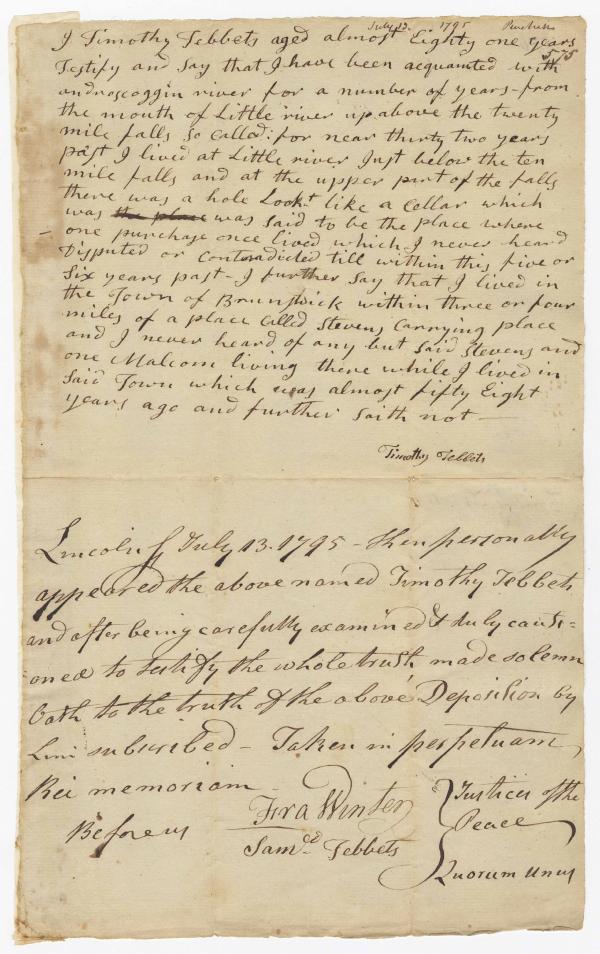 July 13. 1795 Purchase
575
I Timothy Tebbets aged almost Eighty one years
Testify and Say that I have been acquainted with
androscoggin river for a number of years from
the mouth of Little river up above the twenty
mile falls So called: for near thirty two years
past I lived at Little river Just below the ten
mile falls and at the upper part of the falls
there was a hole Lookt like a Collar which
was the place was Said to be the place where
one purchase once lived which I never heard
Disputed or Contradicted till within this five or
Six years past - I further Say that I lived in
the Town of Brunswick within three or four
miles of a place Called Stevens Carrying place
and I never heard of any but Said Stevens and
one Malcom living there while I lived in
Said Town which was almost fifty Eight
years ago and further Saith not —
Timothy Tebbets
Lincoln ss July 13. 1795 - then personally
appeared the above named Timothy Tebbets
and after being carefully examined & duly cauti=
=oned to testify the whole truth made solemn
Oath to the truth of the above Deposition by
him subscribed - Taken in perpetuam
Rei memoriam -
Before us
Ezra Winter
Saml Tebbets
Justices of the
Peace
Quorum Unus